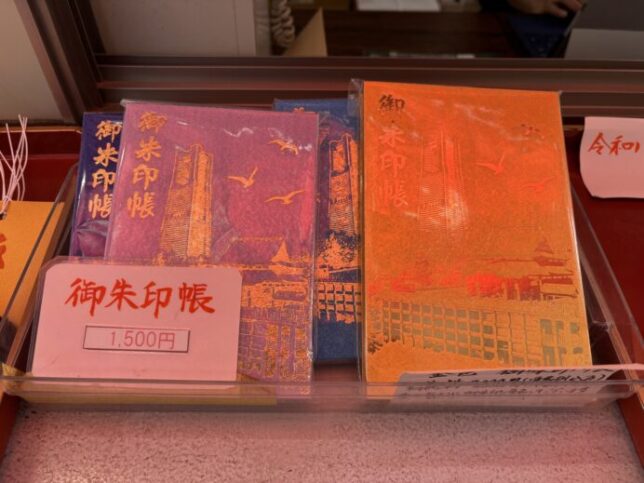 御朱印帳
御朱印帳
御朱印帳
御朱印帳
1,500円
令和